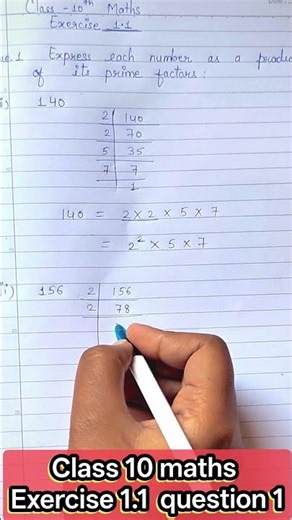 Class - 10th Maths
Exercise 1.1
1 Express each number as a
of its prime factors :
i) 140
2 | 140
2 | 70
5 | 35
7 | 7
1
140 = 2 × 2 × 5 × 7
= 2² × 5 × 7
ii) 156
2 | 156
2 | 78
Class 10 maths
Exercise 1.1 question 1